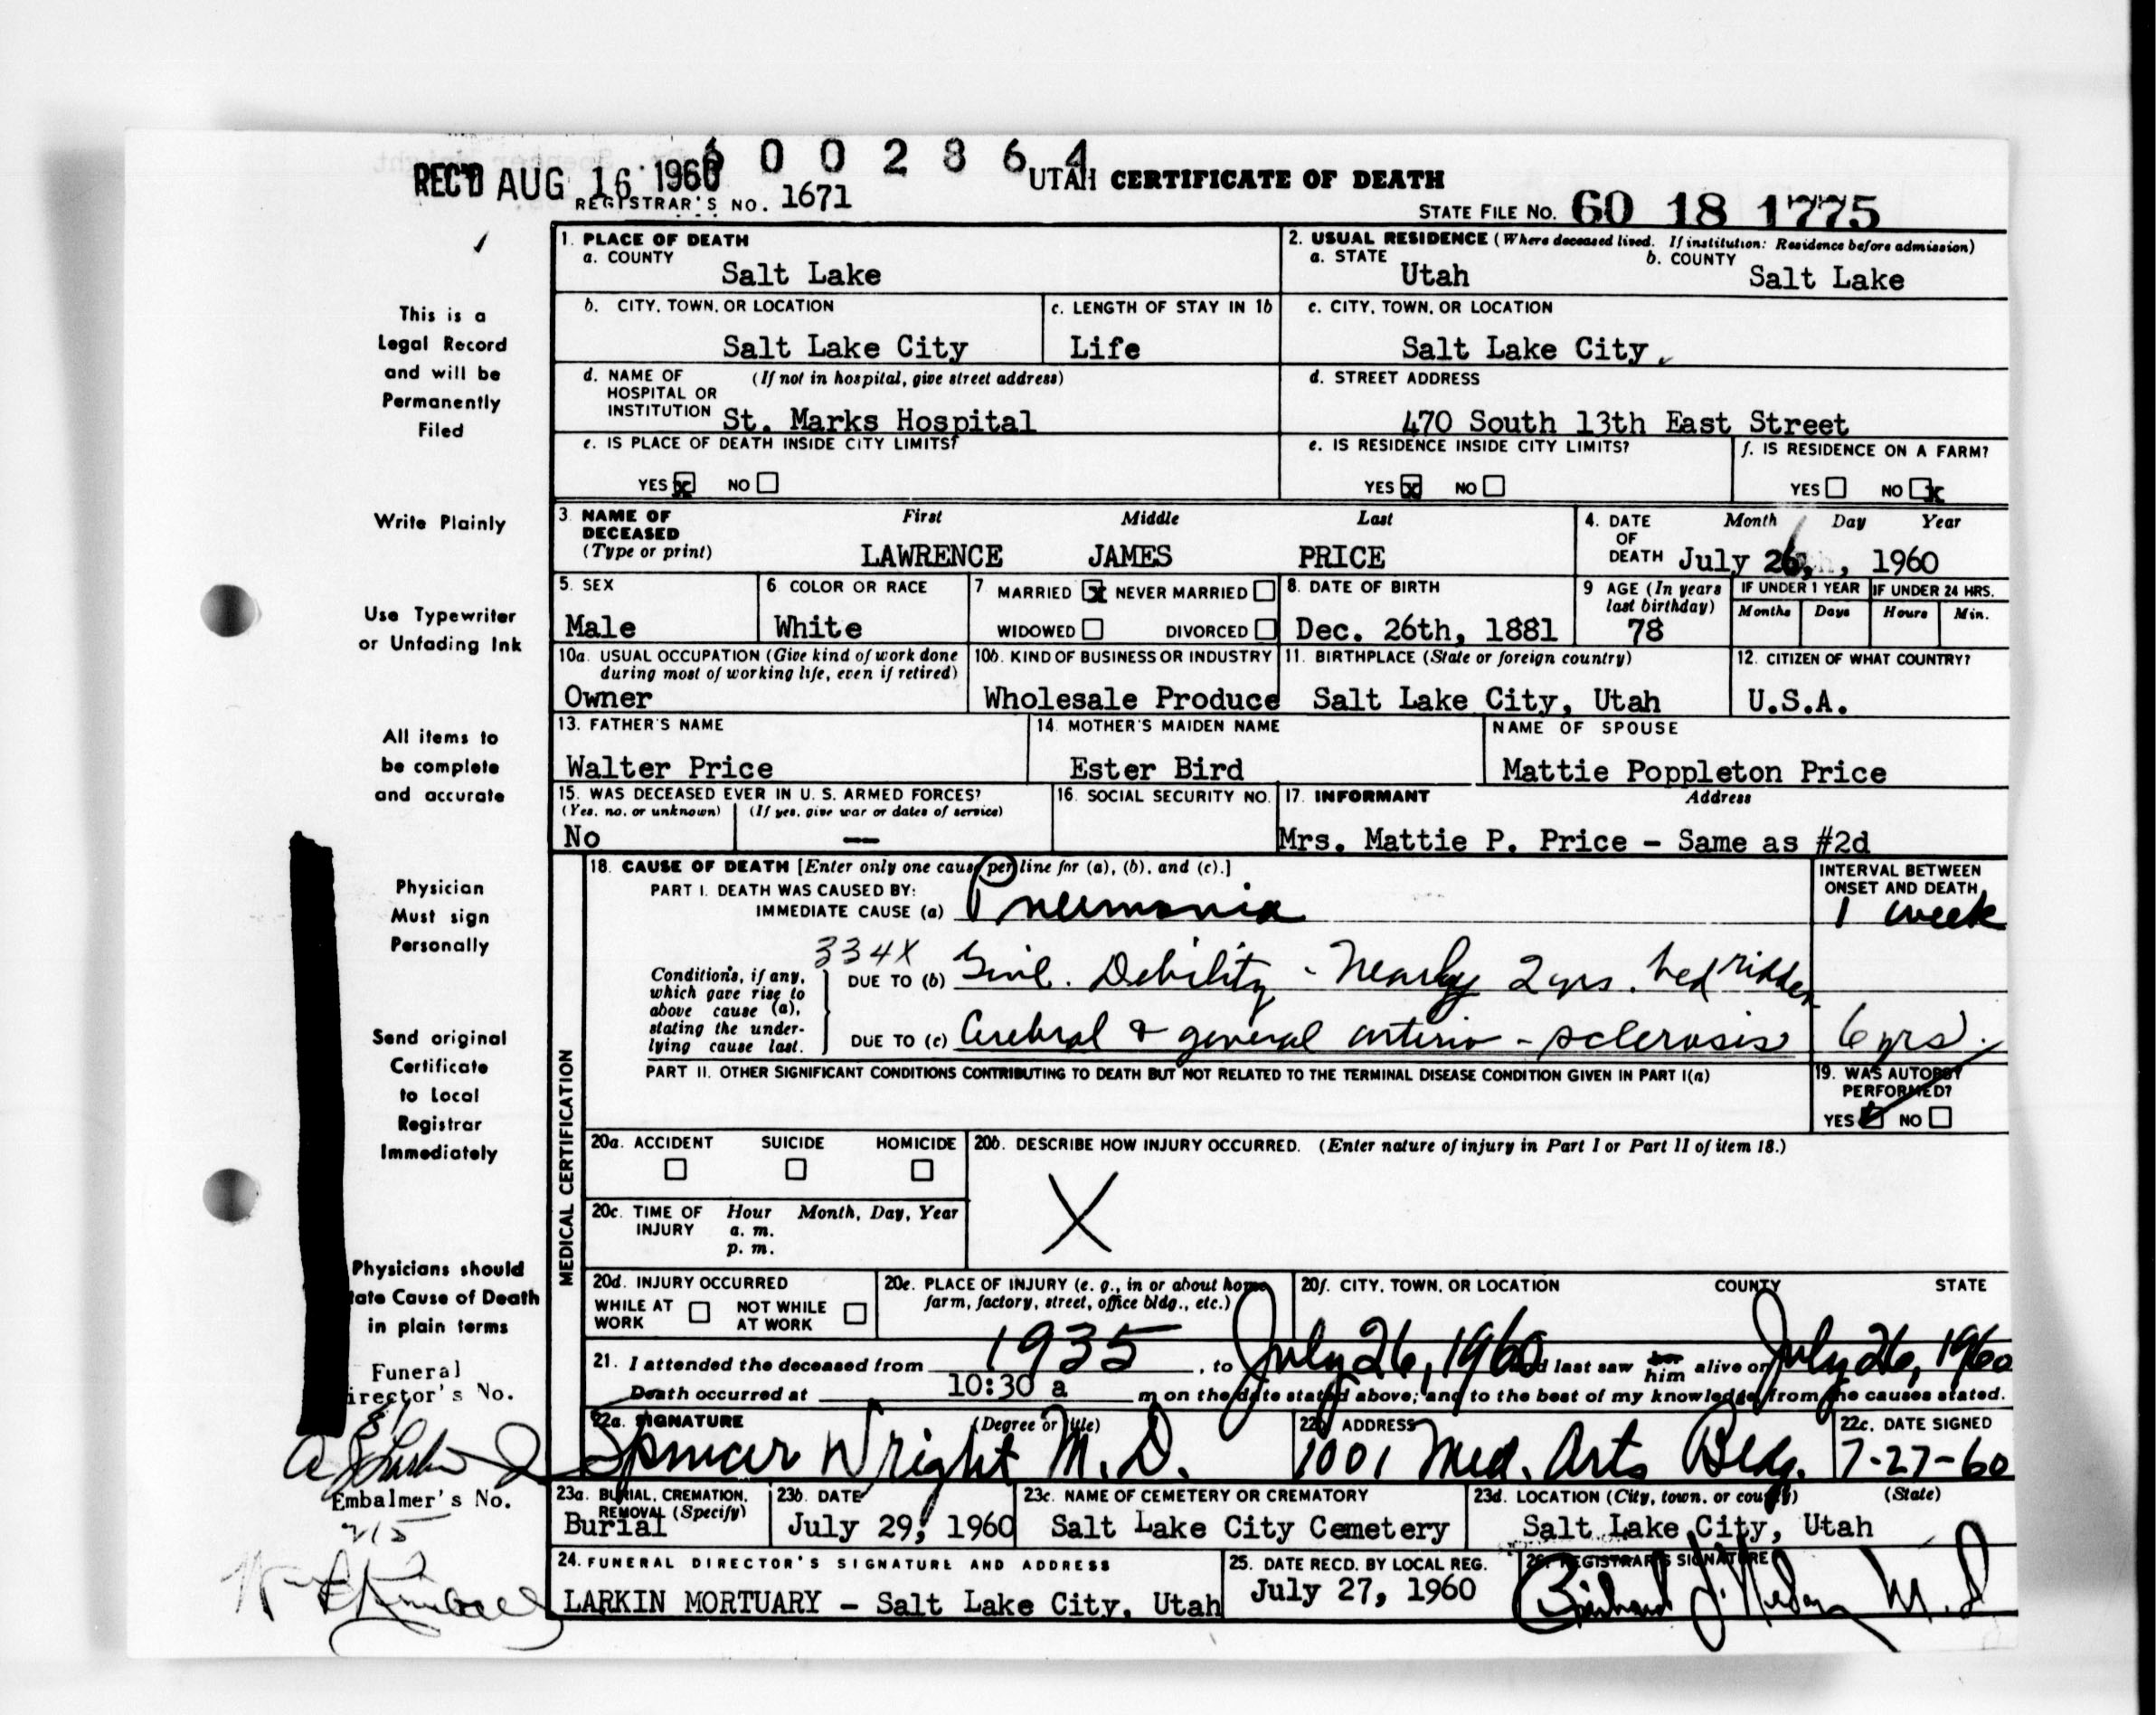 6002864
REC'D AUG 16 1960
UTAH CERTIFICATE OF DEATH
REGISTRAR'S NO. 1671
STATE FILE NO. 60 18 1775
1. PLACE OF DEATH
a. COUNTY
Salt Lake
2. USUAL RESIDENCE (Where deceased lived. If institution: Residence before admission)
a. STATE
Utah
b. COUNTY
Salt Lake
b. CITY, TOWN, OR LOCATION
Salt Lake City
c. LENGTH OF STAY IN 1b
Life
c. CITY, TOWN, OR LOCATION
Salt Lake City
d. NAME OF HOSPITAL OR INSTITUTION (If not in hospital, give street address)
St. Marks Hospital
d. STREET ADDRESS
470 South 13th East Street
e. IS PLACE OF DEATH INSIDE CITY LIMITS?
YES x NO
e. IS RESIDENCE INSIDE CITY LIMITS?
YES x NO
f. IS RESIDENCE ON A FARM?
YES NO x
3. NAME OF DECEASED (Type or print)
First Middle Last
LAWRENCE JAMES PRICE
4. DATE OF DEATH
Month Day Year
July 26, 1960
5. SEX
Male
6. COLOR OR RACE
White
7 MARRIED x NEVER MARRIED
WIDOWED DIVORCED
8. DATE OF BIRTH
Dec. 26th, 1881
9 AGE (In years last birthday)
78
IF UNDER 1 YEAR
Months Days
IF UNDER 24 HRS.
Hours Min.
10a. USUAL OCCUPATION (Give kind of work done during most of working life, even if retired)
Owner
10b. KIND OF BUSINESS OR INDUSTRY
Wholesale Produce
11. BIRTHPLACE (State or foreign country)
Salt Lake City, Utah
12. CITIZEN OF WHAT COUNTRY?
U.S.A.
13. FATHER'S NAME
Walter Price
14. MOTHER'S MAIDEN NAME
Ester Bird
NAME OF SPOUSE
Mattie Poppleton Price
15. WAS DECEASED EVER IN U. S. ARMED FORCES?
(Yes, no, or unknown) (If yes, give war or dates of service)
No —
16. SOCIAL SECURITY NO.
17. INFORMANT Address
Mrs. Mattie P. Price - Same as #2d
18. CAUSE OF DEATH [Enter only one cause per line for (a), (b), and (c).]
PART I. DEATH WAS CAUSED BY:
IMMEDIATE CAUSE (a) Pneumonia
INTERVAL BETWEEN ONSET AND DEATH
1 week
334X
Conditions, if any, which gave rise to above cause (a), stating the underlying cause last.
DUE TO (b) Debility - Nearly 2 yrs. bed ridden
DUE TO (c) Cerebral & general arterio - sclerosis
6 yrs.
PART II. OTHER SIGNIFICANT CONDITIONS CONTRIBUTING TO DEATH BUT NOT RELATED TO THE TERMINAL DISEASE CONDITION GIVEN IN PART I(a)
19. WAS AUTOPSY PERFORMED?
YES NO
MEDICAL CERTIFICATION
20a. ACCIDENT SUICIDE HOMICIDE
20b. DESCRIBE HOW INJURY OCCURRED. (Enter nature of injury in Part I or Part II of item 18.)
X
20c. TIME OF INJURY Hour Month, Day, Year
a. m.
p. m.
20d. INJURY OCCURRED
WHILE AT WORK NOT WHILE AT WORK
20e. PLACE OF INJURY (e. g., in or about home, farm, factory, street, office bldg., etc.)
20f. CITY, TOWN, OR LOCATION COUNTY STATE
21. I attended the deceased from 1935, to July 26, 1960 and last saw her him alive on July 26, 1960
Death occurred at 10:30 a m on the date stated above; and to the best of my knowledge, from the causes stated.
22a. SIGNATURE (Degree or title)
Spencer Wright M. D.
22b. ADDRESS
1001 Med. Arts Bldg.
22c. DATE SIGNED
7-27-60
23a. BURIAL, CREMATION, REMOVAL (Specify)
Burial
23b. DATE
July 29, 1960
23c. NAME OF CEMETERY OR CREMATORY
Salt Lake City Cemetery
23d. LOCATION (City, town, or county) (State)
Salt Lake City, Utah
24. FUNERAL DIRECTOR'S SIGNATURE AND ADDRESS
LARKIN MORTUARY - Salt Lake City, Utah
25. DATE RECD. BY LOCAL REG.
July 27, 1960
26. REGISTRAR'S SIGNATURE
This is a
Legal Record
and will be
Permanently
Filed
Write Plainly
Use Typewriter
or Unfading Ink
All items to
be complete
and accurate
Physician
Must sign
Personally
Send original
Certificate
to Local
Registrar
Immediately
Physicians should
tate Cause of Death
in plain terms
Funeral
irector's No.
Embalmer's No.
215